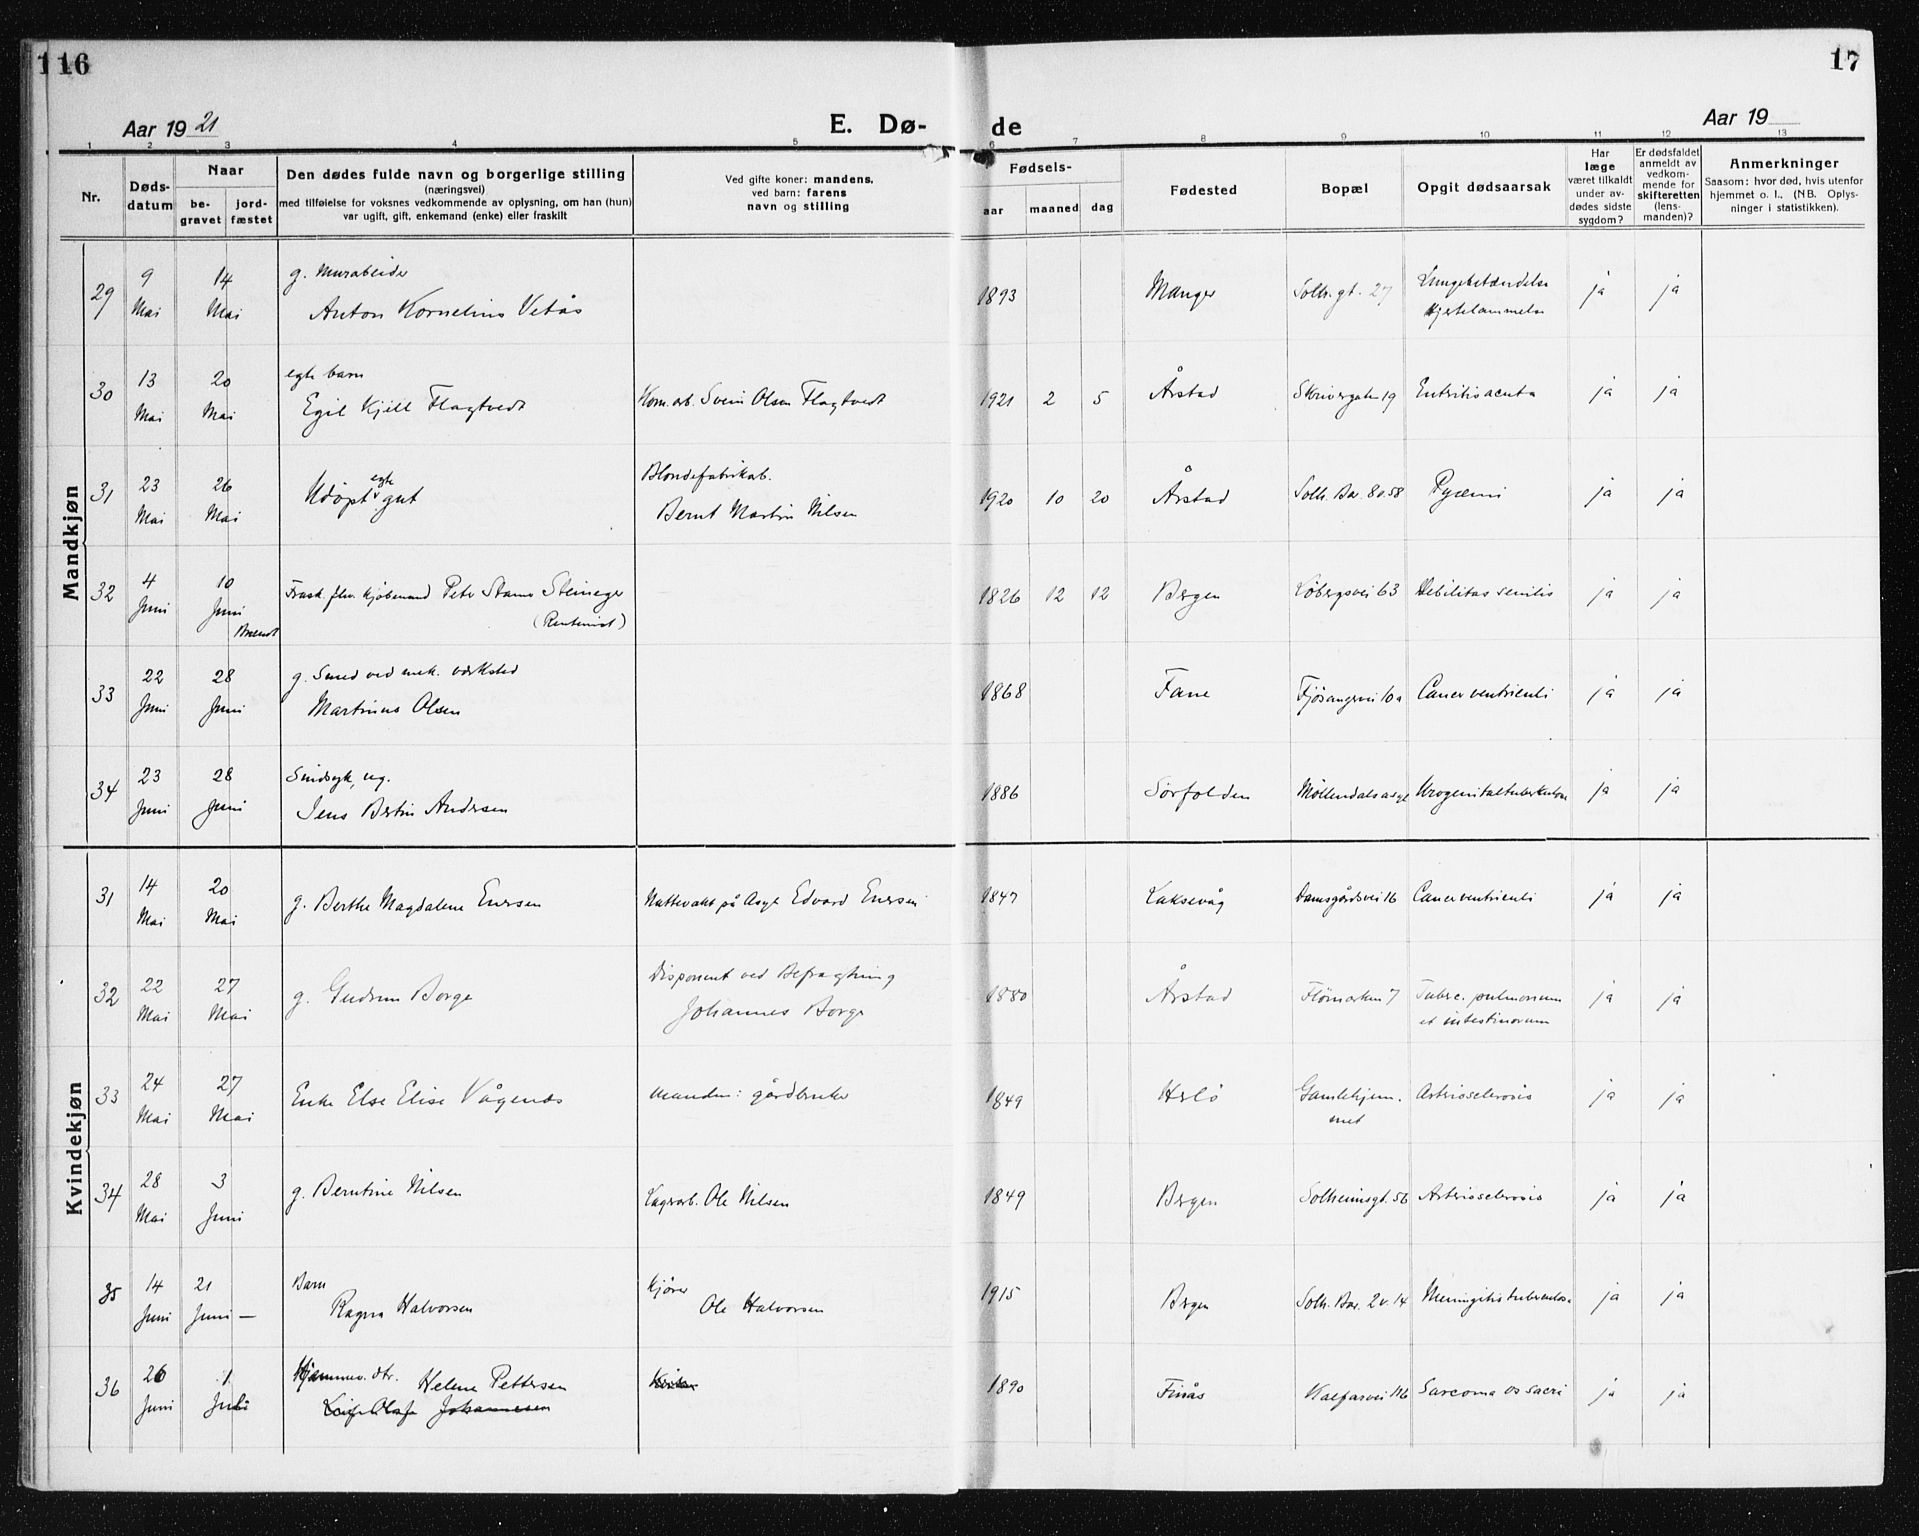 116
17
Aar 1921
E. Dø-
de
Aar 19
1 2 3 4 5 6 7 8 9 10 11 12 13
Nr.
Døds-
datum
Naar
be-
gravet
jord-
fæstet
Den dødes fulde navn og borgerlige stilling
(næringsvei)
med tilføielse for voksnes vedkommende av oplysning, om han (hun)
var ugift, gift, enkemand (enke) eller fraskilt
Ved gifte koner: mandens,
ved barn: farens
navn og stilling
Fødsels-
aar maaned dag
Fødested
Bopæl
Opgit dødsaarsak
Har
læge
været tilkaldt
under av-
dødes sidste
sygdom?
Er dødsfaldet
anmeldt av
vedkom-
mende for
skifteretten
(lens-
manden)?
Anmerkninger
Saasom: hvor død, hvis utenfor
hjemmet o. l., (NB. Oplys-
ninger i statistikken).
Mandkjøn
29 9 Mai 14 Mai g. Murarbeider
Anton Kornelius Vetås 1893 Manger Solh.gt. 27 Lungebetændelse
Hjertelammelse ja ja
30 13 Mai 20 Mai egte barn
Egil Kjell Flagtvedt Kom.arb. Svein Olsen Flagtvedt 1921 2 5 Årstad Skrivergaten 19 Entritis acuta ja ja
31 23 Mai 26 Mai Udøpt egte gut Blondefabrikarb.
Bernt Martin Nilsen 1920 10 20 Årstad Solh. Bar. 8 o. 58 Pyæmi ja ja
32 4 Juni 10 Juni Brændt Frask. fhv. Kjøbmand Peter Stamer Steineger
(Rentenist) 1826 12 12 Bergen Løbergsvei 63 Debilitas senilis ja ja
33 22 Juni 28 Juni g. Smed ved mek. værksted
Martinus Olsen 1868 Fane Fjøsangervei 10a Cancer ventriculi ja ja
34 23 Juni 28 Juni Sindssyk, ug.
Jens Bertin Andersen 1886 Sørfolden Møllendalsasyl Urogenitaltuberkulose ja ja
Kvindekjøn
31 14 Mai 20 Mai g. Berthe Magdalene Enersen Nattevakt på Asyl Edvard Enersen 1847 Laksevåg Damsgårdsvei 16 Cancer ventriculi ja ja
32 22 Mai 27 Mai g. Gudrun Borge Disponent ved Befragtning
Johannes Borge 1880 Årstad Flømarken 7 Tuberc. pulmonum
et intestinorum ja ja
33 24 Mai 27 Mai Enke Else Elise Vågenes manden: gårdbruker 1849 Herlø Gamlehjem-
met Arteriosclerosis ja ja
34 28 Mai 3 Juni g. Berntine Nilsen Lagerarb. Ole Nilsen 1849 Bergen Solheimsgt. 56 Arteriosclerosis ja ja
35 14 Juni 21 Juni — Barn
Ragna Halvorsen Kjører
Ole Halvorsen 1915 Bergen Solh. Bar. 2 v. 14 Meningitis tuberculosa ja ja
36 26 Juni 1 Juli Hjemmev. dtr. Helene Pettersen
Johannesen 1890 Finås Kalfarvei 116 Sarcoma os sacri ja ja